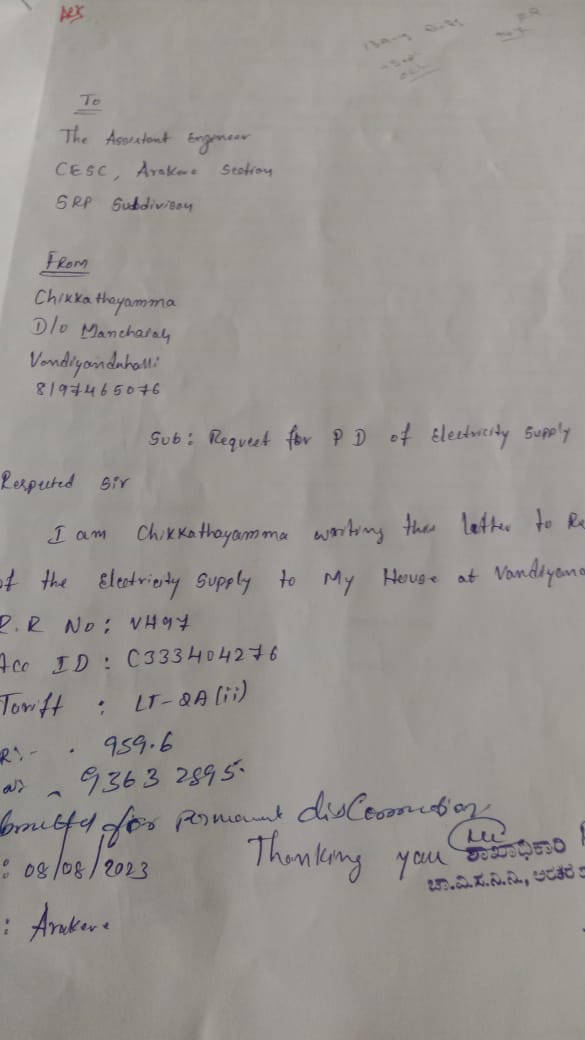 To
The Assistant Engineer
CESC, Arakere Section
SRP Subdivison
FROM
Chikkathayamma
D/o Mancharah
Vandiyandahalli
8197465076
Sub: Request for P D of Electricity Supply
Respected Sir
I am Chikkathayamma writing this latter to Re
of the Electricity Supply to My House at Vandiyana
R.R No: VH97
Acc ID: C333404276
Tariff : LT-2A(ii)
R:- . 959.6
93632895.
for permanent disconnection
: 08/08/2023
Thanking you
ಶಾಖಾಧಿಕಾರಿ
ಚಾ.ವಿ.ಸ.ನಿ.ನಿ., ಅರಕೆರೆ
: Arakere